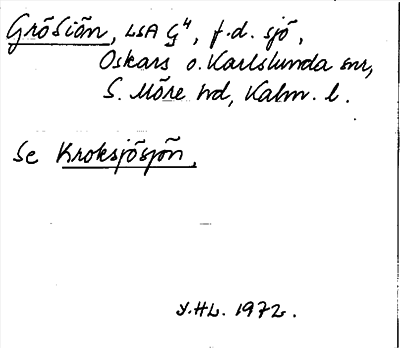 Grösiön, LSA G⁴, f.d. sjö,
Oskars o. Karlslunda snr,
S. Möre hd, Kalm. l.
Se Kroksjösjön.
Y.HL. 1972.